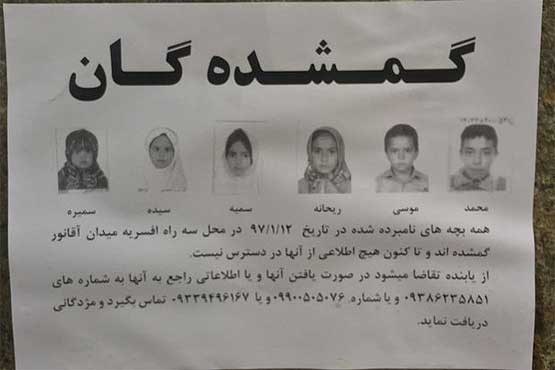 گمشده گان
محمد موسی ریحانه سمیه سیده سمیره
همه بچه های نامبرده شده در تاریخ ۹۷/۱/۱۲ در محل سه راه افسریه میدان آقانور
گمشده اند و تا کنون هیچ اطلاعی از آنها در دسترس نیست.
از یابنده تقاضا میشود در صورت یافتن آنها و یا اطلاعاتی راجع به آنها به شماره های
۰۹۳۸۶۲۳۵۸۵۱ و یا شماره ۰۹۹۰۰۵۰۵۰۷۶ و یا ۰۹۳۳۹۴۹۶۱۶۷ تماس بگیرد و مژدگانی
دریافت نماید.